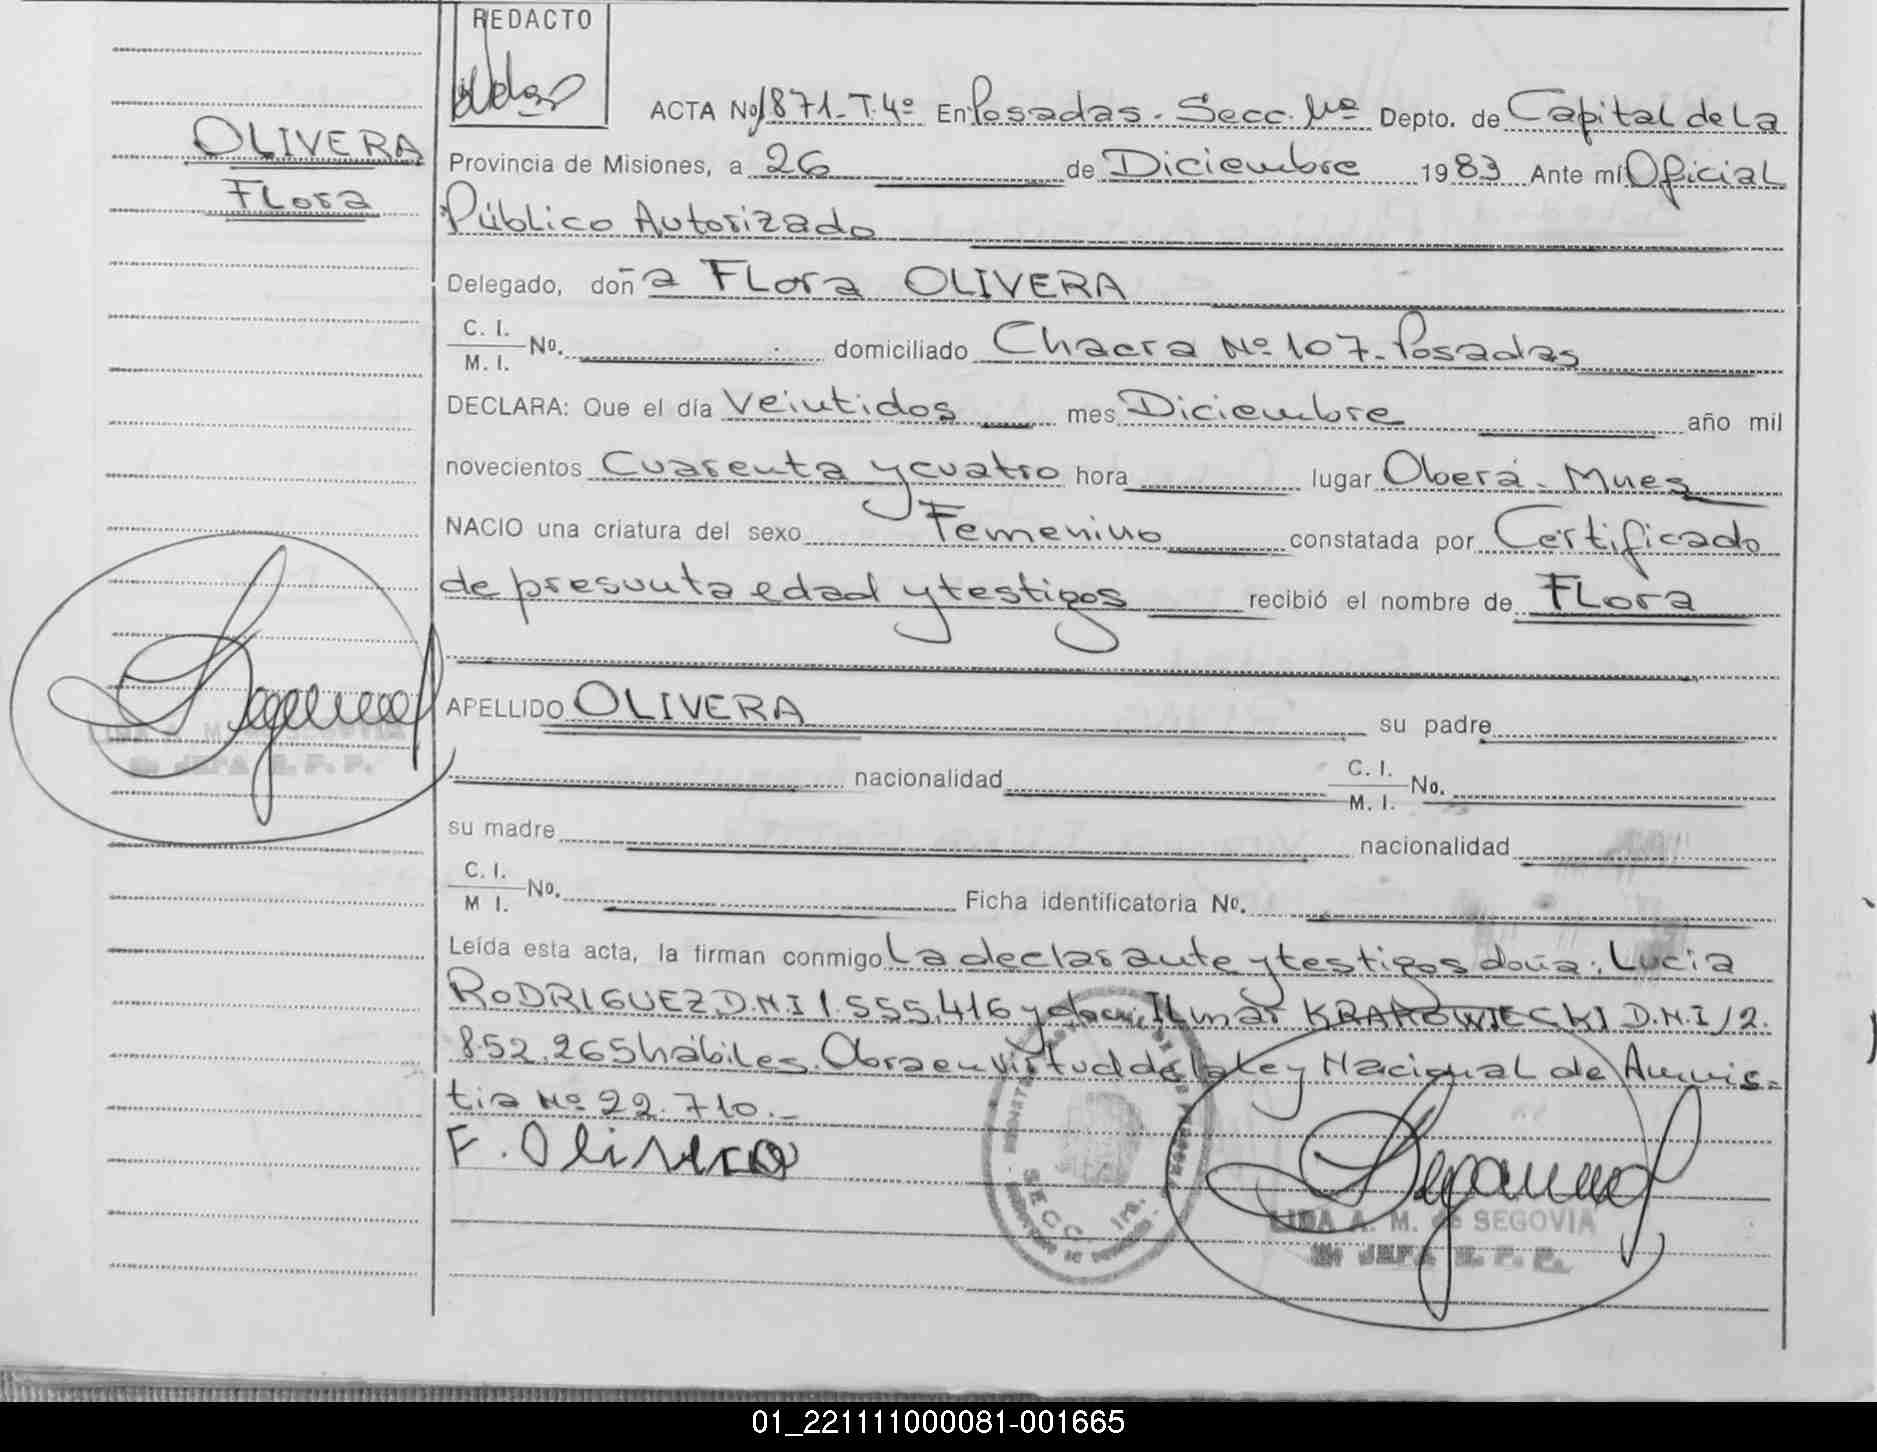 REDACTO
OLIVERA
Flora
ACTA Nº 1871-T.4º En Posadas - Secc. 1ra Depto. de Capital de La
Provincia de Misiones, a 26 de Diciembre 1983 Ante mí Oficial
Público Autorizado
Delegado, doña Flora OLIVERA
C. I.
M. I. Nº. domiciliado Chacra Nº 107 - Posadas
DECLARA: Que el día Veintidos mes Diciembre año mil
novecientos Cuarenta y cuatro hora lugar Oberá - Mnes
NACIO una criatura del sexo Femenino constatada por Certificado
de presunta edad y testigos recibió el nombre de Flora
APELLIDO OLIVERA su padre
nacionalidad C. I.
M. I. No.
su madre nacionalidad
C. I.
M I. Nº. Ficha identificatoria Nº.
Leída esta acta, la firman conmigo La declarante y testigos doña: Lucia
RODRIGUEZ D.N.I 1.555.416 y Ilmar KRAKOWIECKI D.N.I 12.
852.265 hábiles. Obra en virtud de la Ley Nacional de Amnis-
tia Nº 22.710.-
F. Olivera
SECC. 1ra.
LIDA A. M. de SEGOVIA
JEFA
01_221111000081-001665